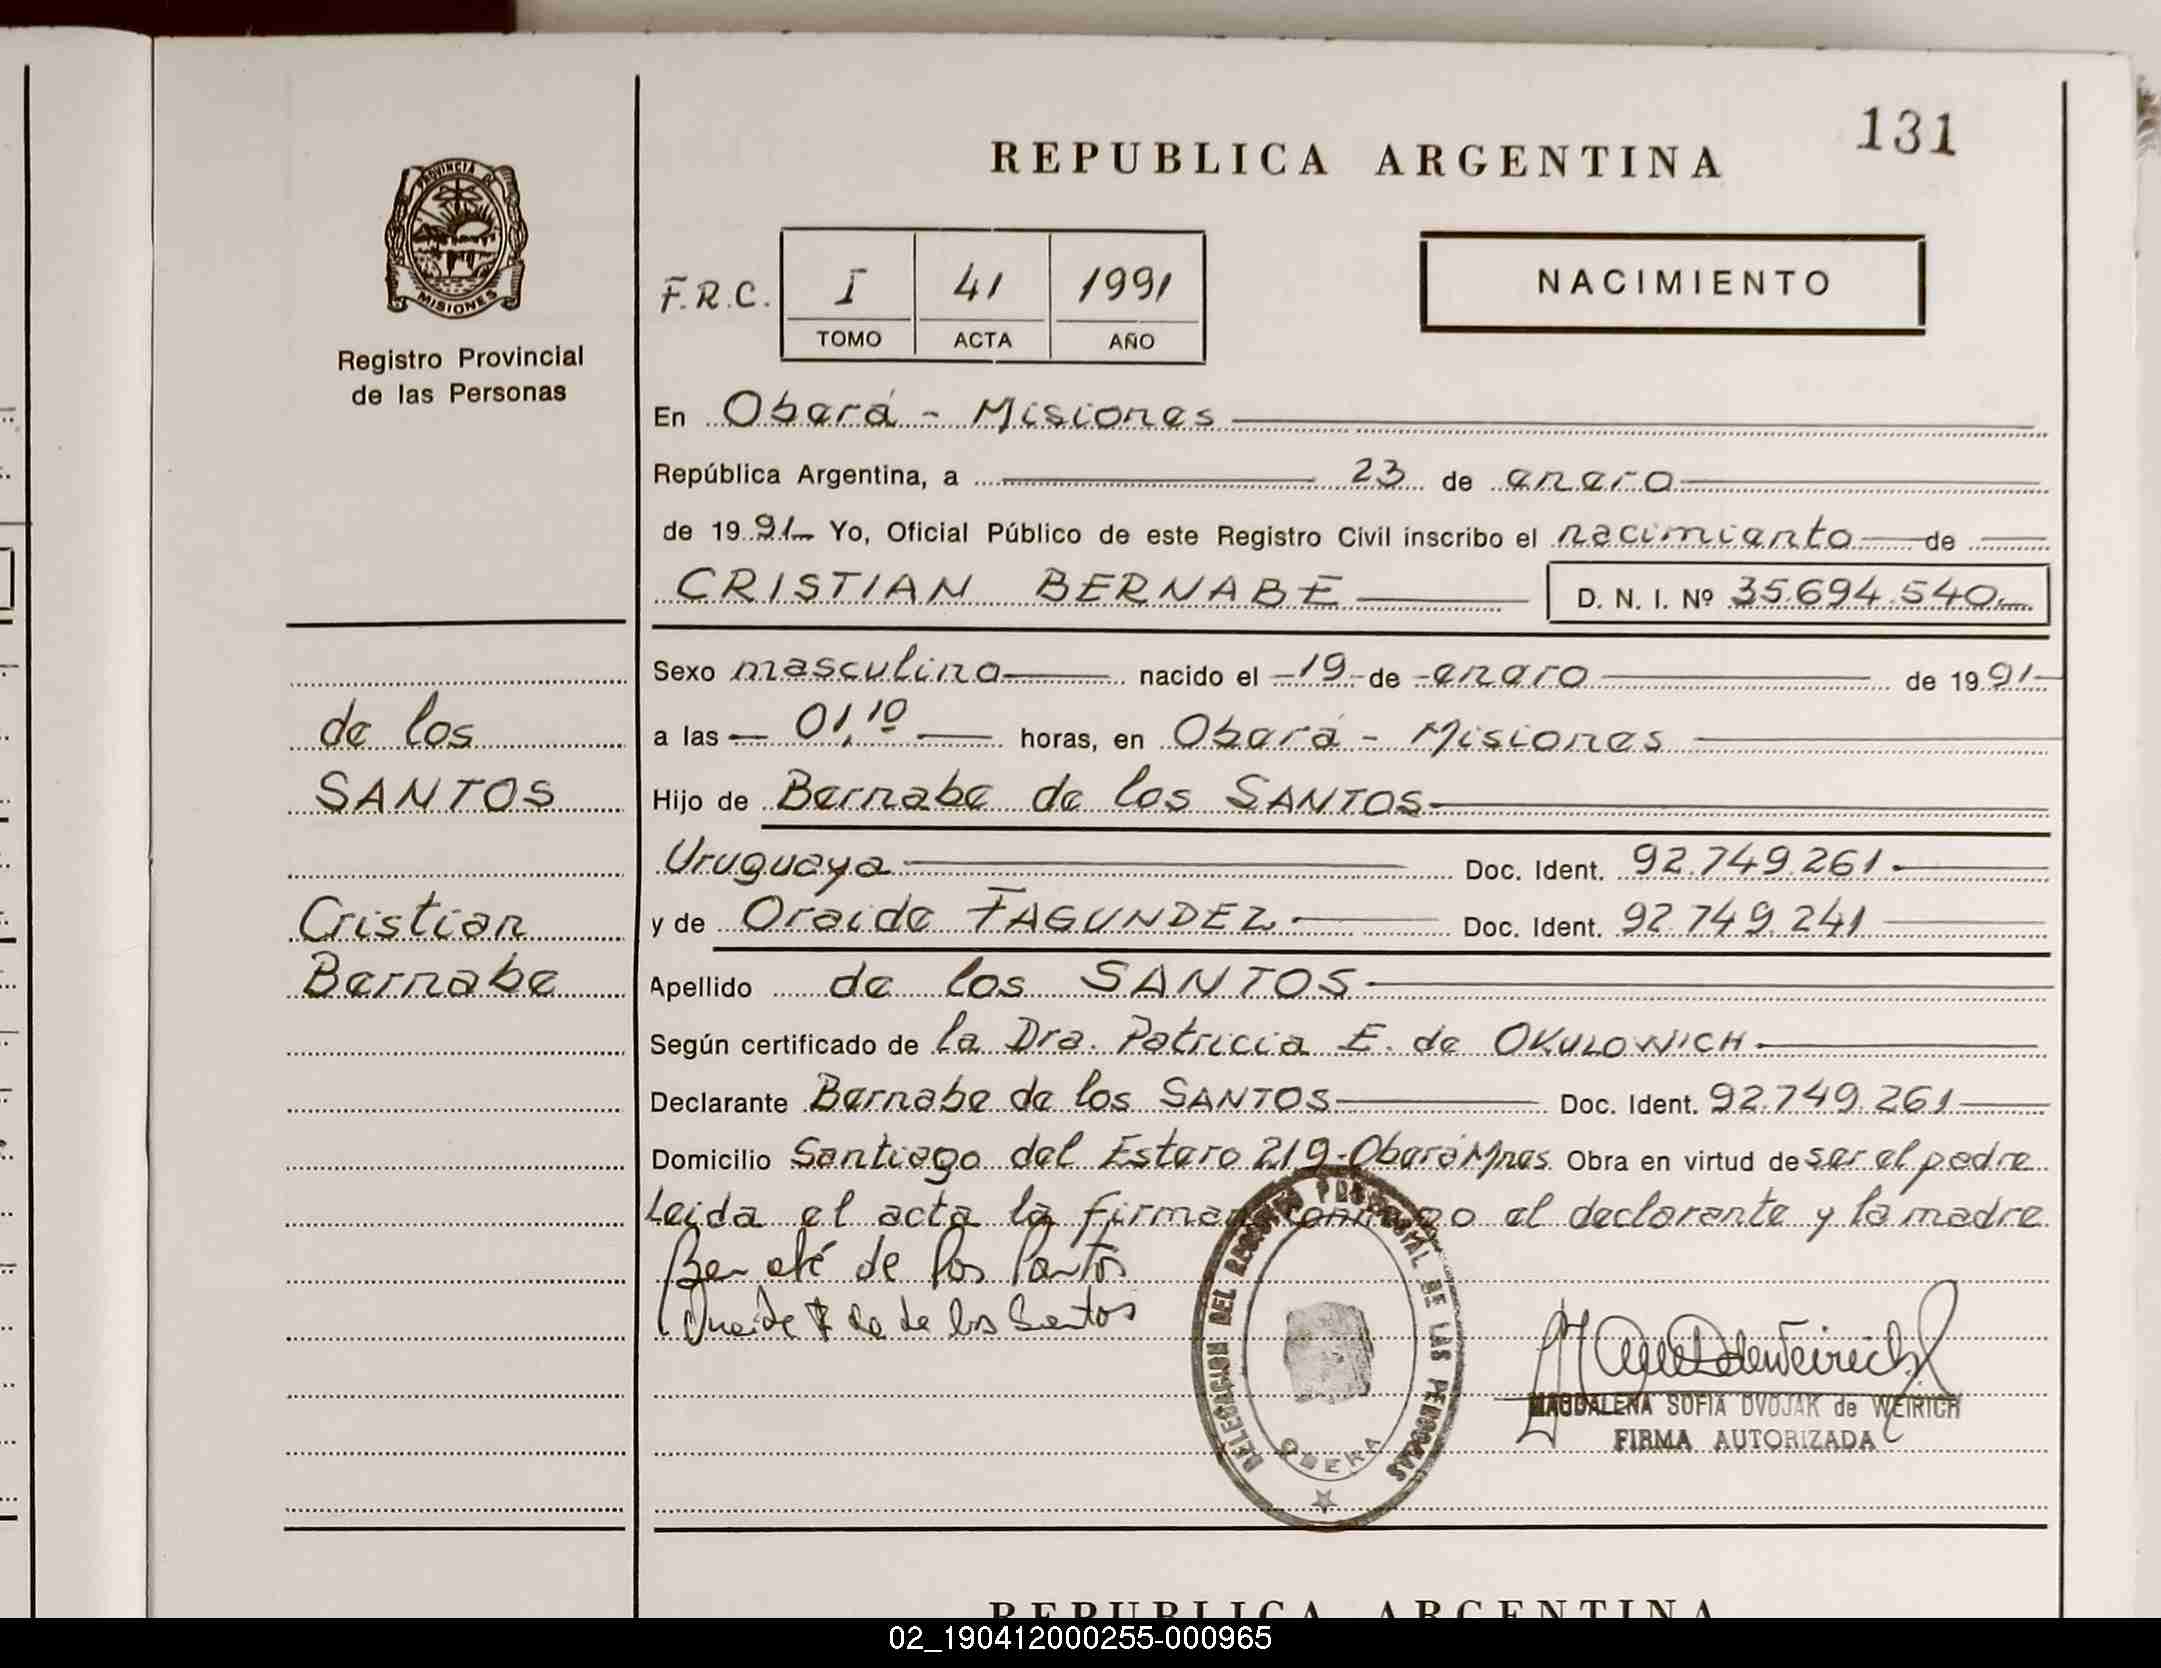 131
REPUBLICA ARGENTINA
PROVINCIA DE
MISIONES
Registro Provincial
de las Personas
F.R.C.
I 41 1991
TOMO ACTA AÑO
NACIMIENTO
En Oberá - Misiones
República Argentina, a 23 de enero
de 1991 Yo, Oficial Público de este Registro Civil inscribo el nacimiento de
CRISTIAN BERNABE D. N. I. Nº 35.694.540.-
Sexo masculino nacido el 19 de enero de 1991
a las 01,10 horas, en Oberá - Misiones
Hijo de Bernabe de los SANTOS
Uruguaya Doc. Ident. 92.749.261
y de Oraide FAGUNDEZ Doc. Ident. 92.749.241
Apellido de los SANTOS
Según certificado de la Dra. Patricia E. de OKULOWICH
Declarante Bernabe de los SANTOS Doc. Ident. 92.749.261
Domicilio Santiago del Estero 219-Oberá Mnes Obra en virtud de ser el padre
Leida el acta la firman conmigo el declarante y la madre
de los Santos
de los Santos
de los
SANTOS
Cristian
Bernabe
DELEGACION DEL REGISTRO PROVINCIAL DE LAS PERSONAS
OBERA
MAGDALENA SOFIA DVOJAK de WEIRICH
FIRMA AUTORIZADA
REPUBLICA ARGENTINA
02_190412000255-000965